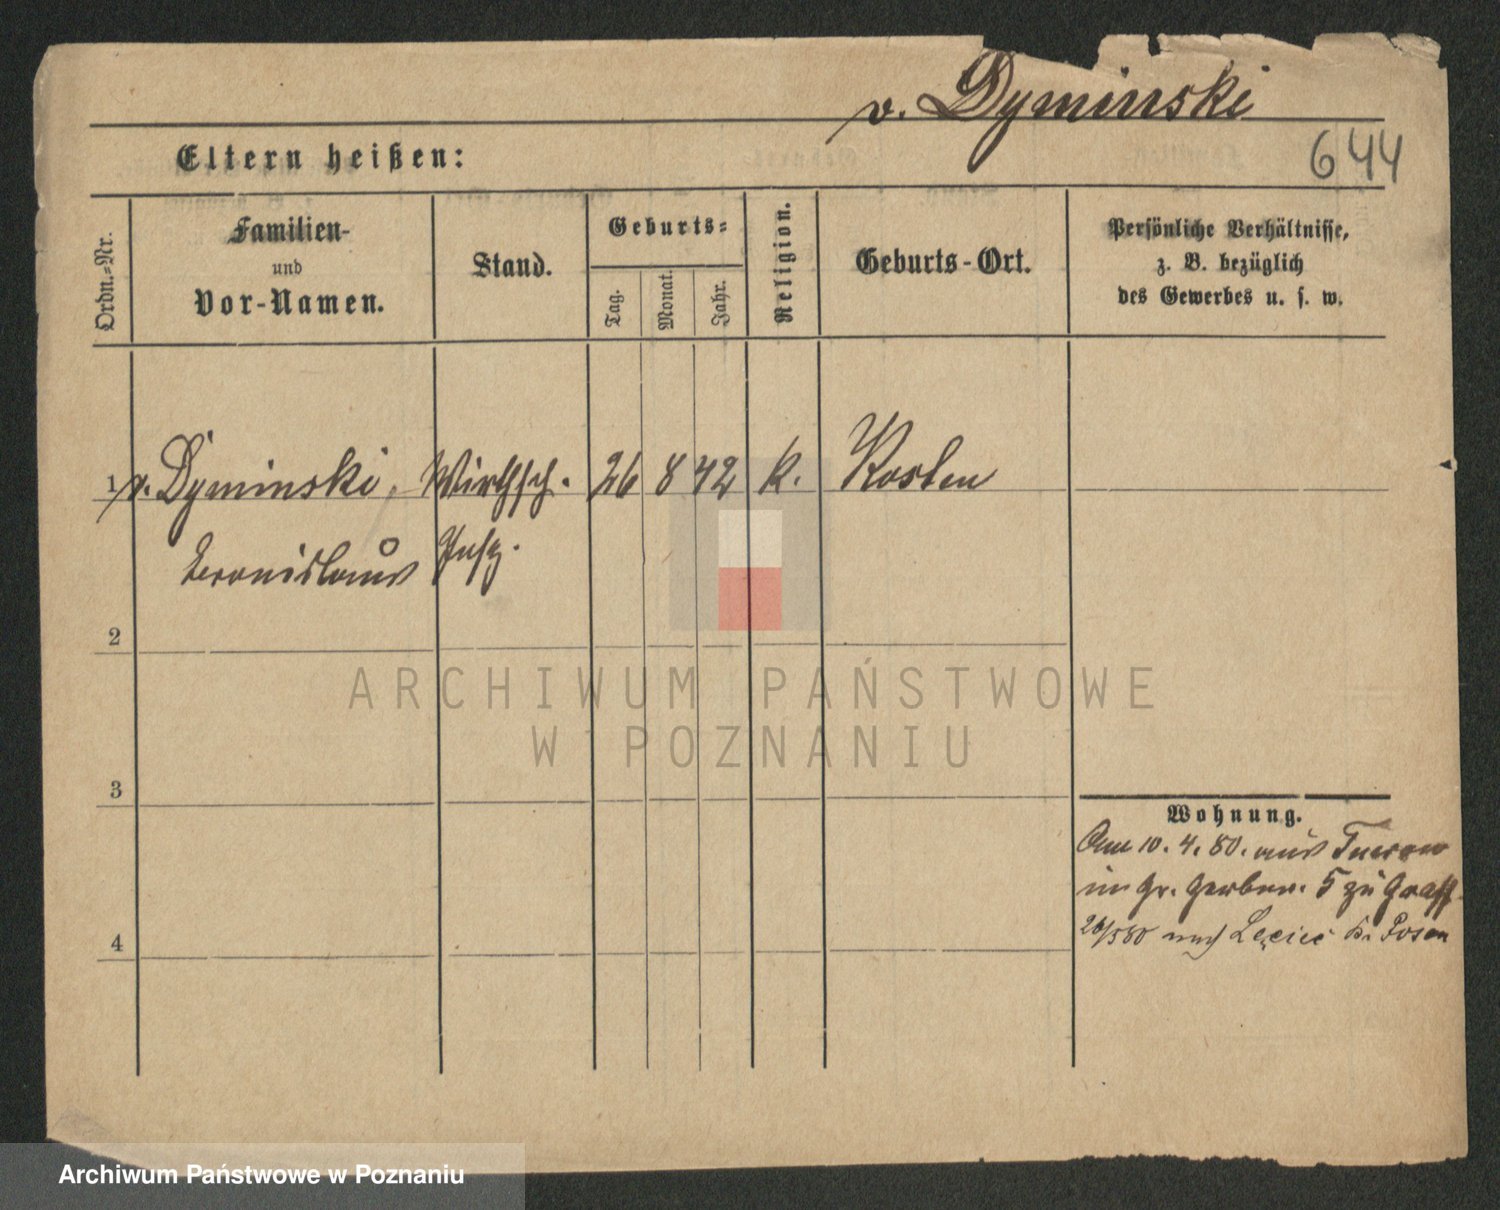 v. Dyminski
644
Eltern heißen:
Ordn.-Nr.
Familien-
und
Vor-Namen.
Stand.
Geburts-
Tag.
Monat.
Jahr.
Religion.
Geburts-Ort.
Persönliche Verhältnisse,
z. B. bezüglich
des Gewerbes u. s. w.
1 v. Dyminski, Wirthsch. 26 8 42 k. Kosten
Bronislaus Insp.
2
3
4
Wohnung.
10. 4. 80. aus
im Gr. Gerber. 5 zu Graff
26/5 80 nach Posen
ARCHIWUM PAŃSTWOWE
W POZNANIU
Archiwum Państwowe w Poznaniu